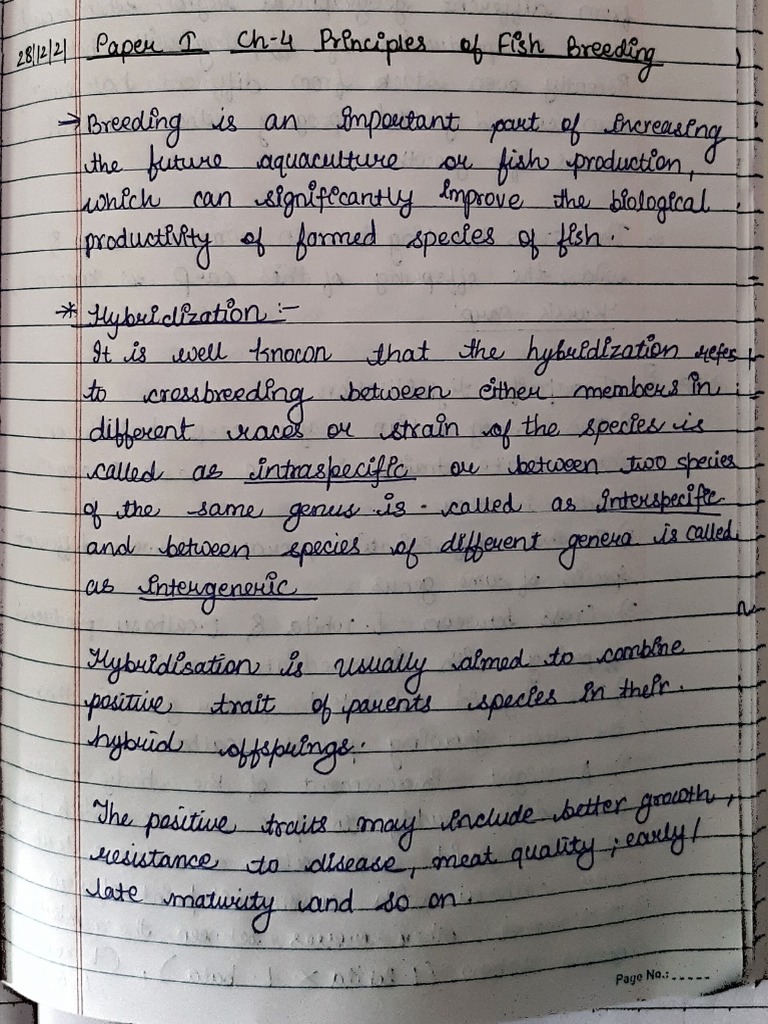 28/12/21 Paper I Ch-4 Principles of Fish Breeding
→ Breeding is an important part of increasing
the future aquaculture or fish production,
which can significantly improve the biological
productivity of formed species of fish.
* Hybridization :-
It is well known that the hybridization refes
to crossbreeding between either members in
different races or strain of the species is
called as intraspecific or between two species
of the same genus is called as interspecific
and between species of different genera is called
as intergeneric
Hybridisation is usually aimed to combine
positive trait of parents species in their
hybrid offsprings.
The positive traits may include better growth,
resistance to disease, meat quality, early/
late maturity and so on.
Page No.: .....